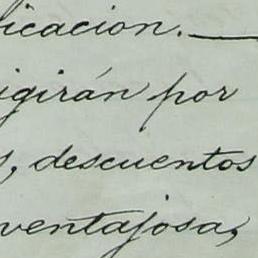 icacion.—
igirán por
s, descuentos
ventajosa,